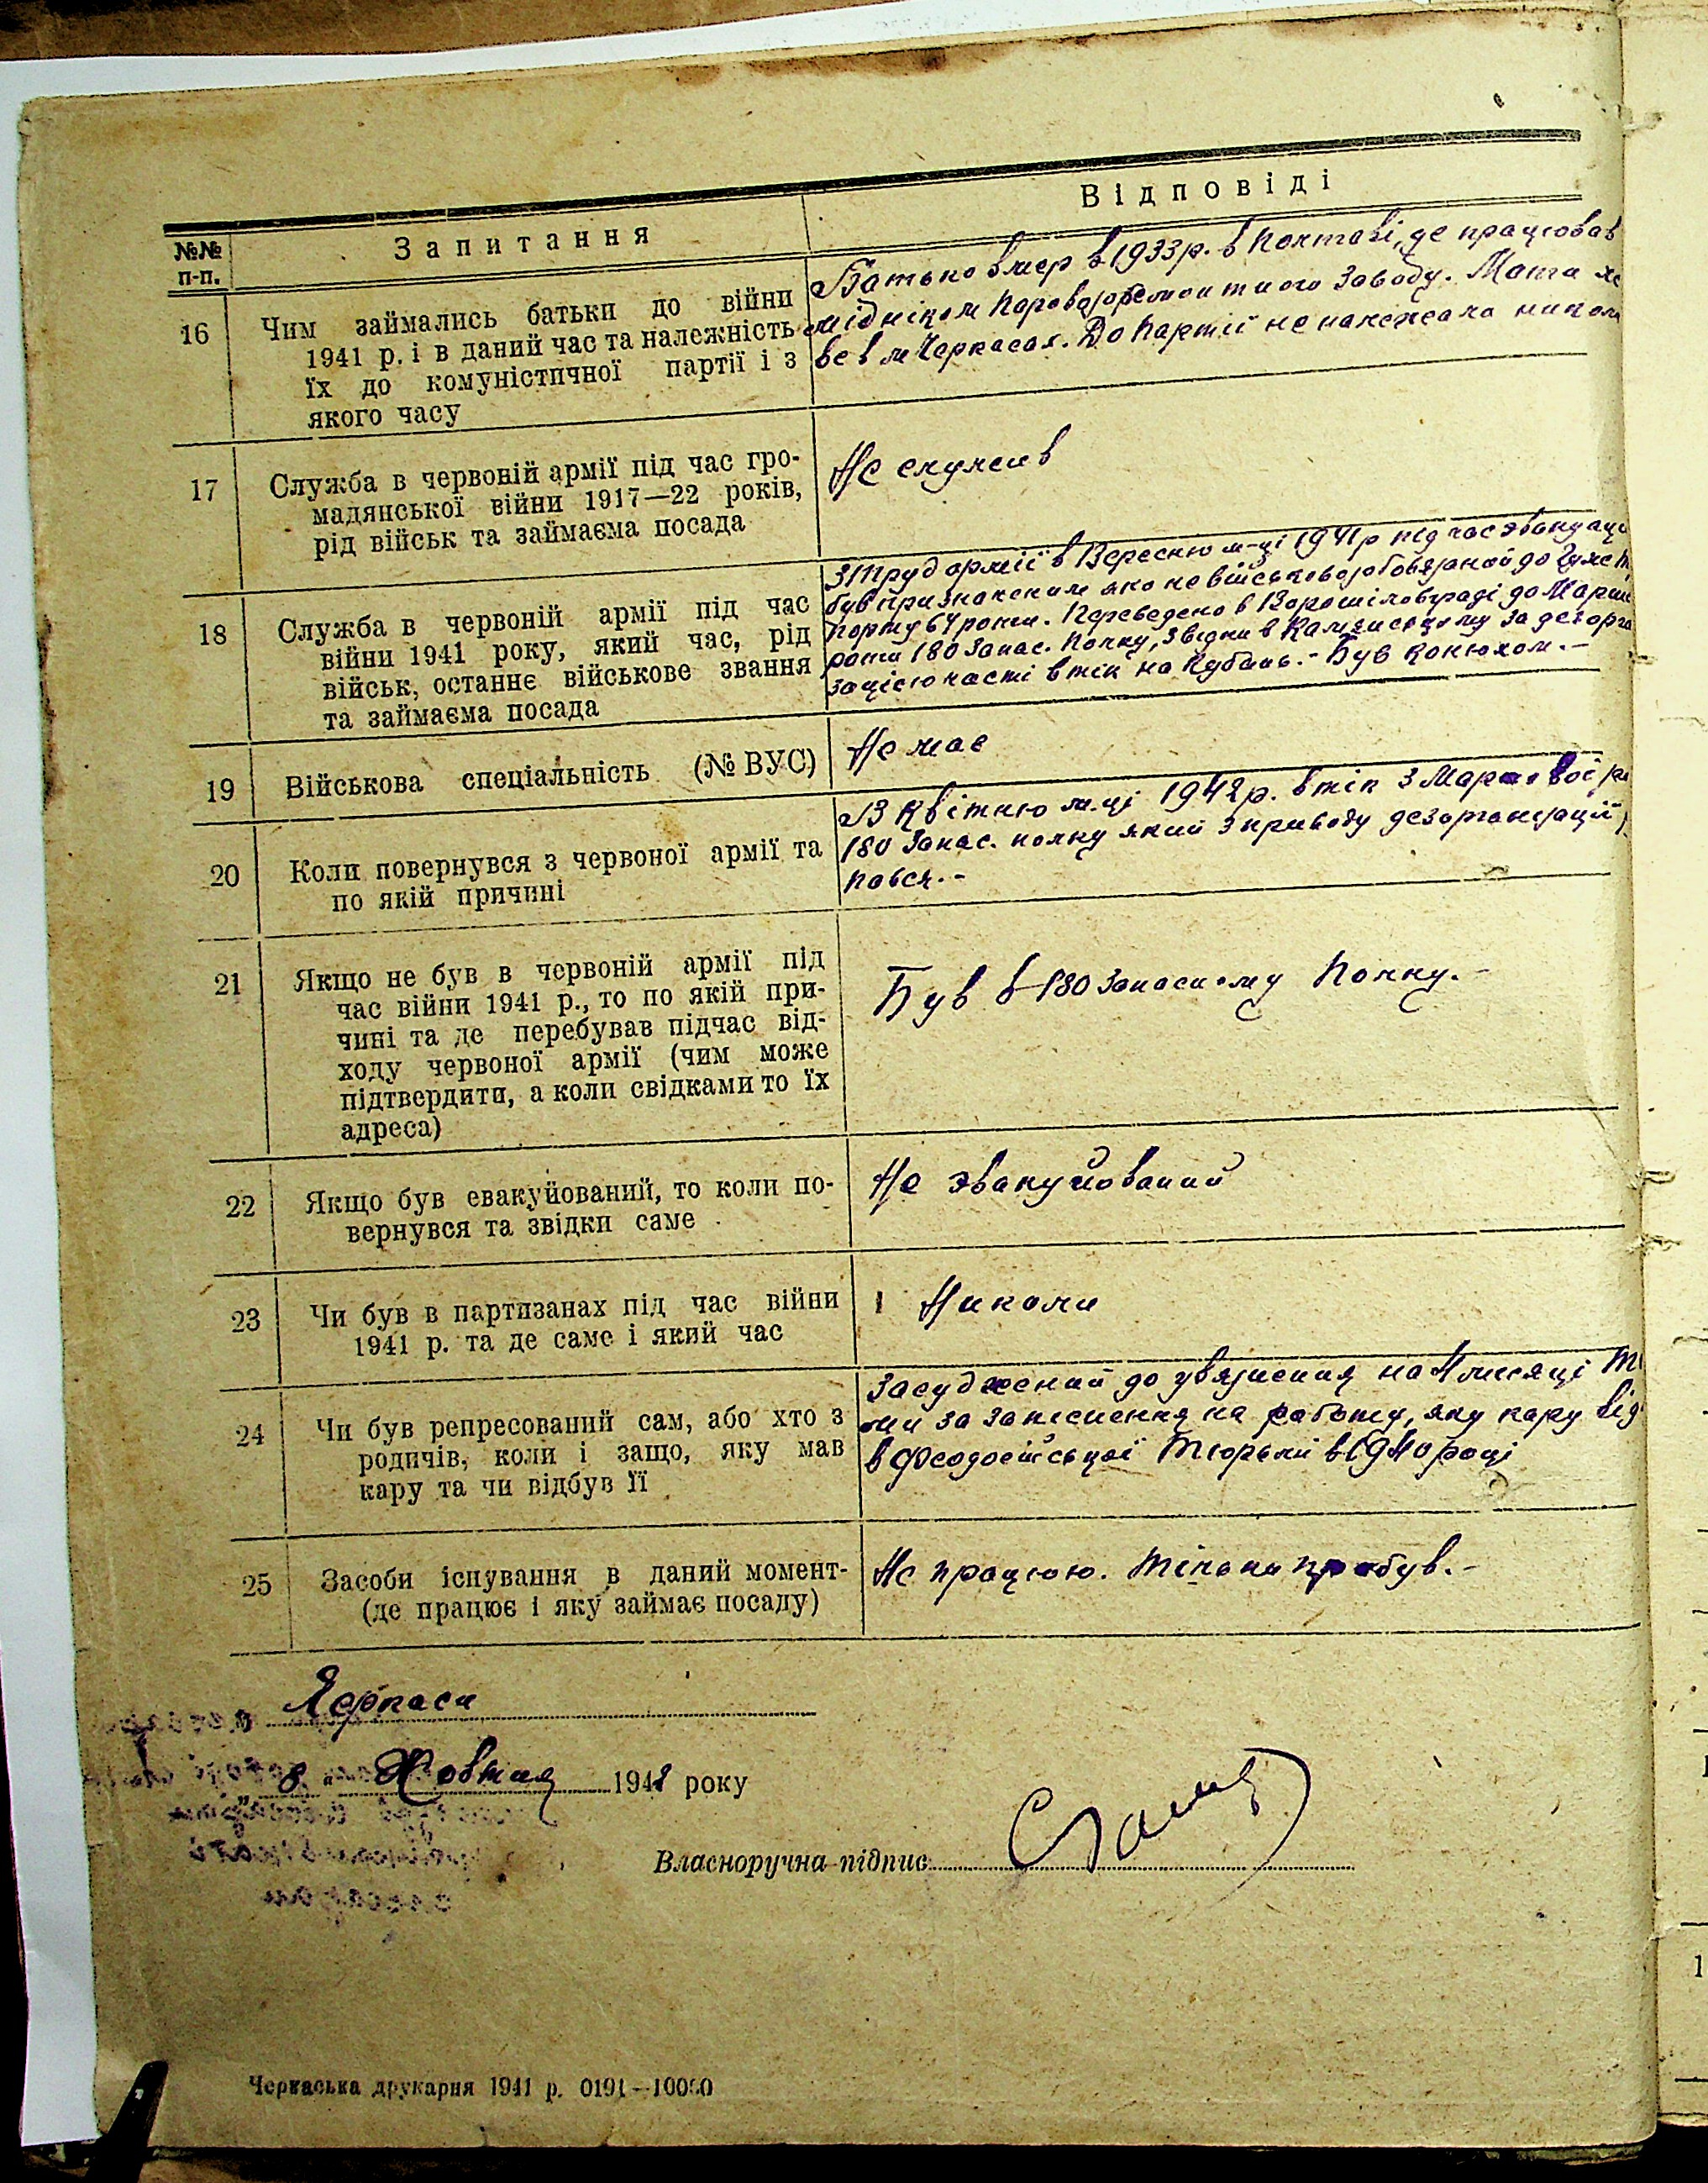 Відповіді
№№ Запитання
п-п.
16 Чим займались батьки до війни
1941 р. і в даний час та належність
їх до комуністичної партії і з
якого часу
Батько вмер в 1933 р. в Полтаві, де працював
мідніком Паровозоремонтного Заводу. Мати
ве в м Черкасах. До Партії не належала никол
17 Служба в червоній армії під час гро-
мадянської війни 1917—22 років,
рід військ та займаєма посада
Не служив
18 Служба в червоній армії під час
війни 1941 року, який час, рід
військ, останнє військове звання
та займаєма посада
З Труд армії в Вересню м-ці 1941 р під час эвакуаци
був призначеним яко не військовозобовязаной до
порту 64 роти. Переведено в Ворошіловграді до Марш
роти 180 Запас. Полку, звідки в за дезорга
зацією часті втік на Кубань.- Був Конюхом.-
19 Військова спеціальність (№ ВУС)
Не має
20 Коли повернувся з червоної армії та
по якій причині
В Квітню м-ці 1942 р. втік з Маршовоі ро
180 Запас. полку який з приводу дезорганізації
пався.-
21 Якщо не був в червоній армії під
час війни 1941 р., то по якій при-
чині та де перебував підчас від-
ходу червоної армії (чим може
підтвердити, а коли свідками то їх
адреса)
Був в 180 Запасному Полку.-
22 Якщо був евакуйований, то коли по-
вернувся та звідки саме
Не эвакуйований
23 Чи був в партизанах під час війни
1941 р. та де саме і який час
Николи
24 Чи був репресований сам, або хто з
родичів, коли і защо, яку мав
кару та чи відбув її
Засуджений до увязнения на 4 місяці Т
ми за запізнення на работу, яку кару від
в Феодосійській Тюрьмі в 1940 році
25 Засоби існування в даний момент-
(де працює і яку займає посаду)
Не працюю. Тільки прибув.-
Черкаси
„ 8 “ Жовтня 1942 року
Власноручна підпис
Черкаська друкарня 1941 р. 0191—10000